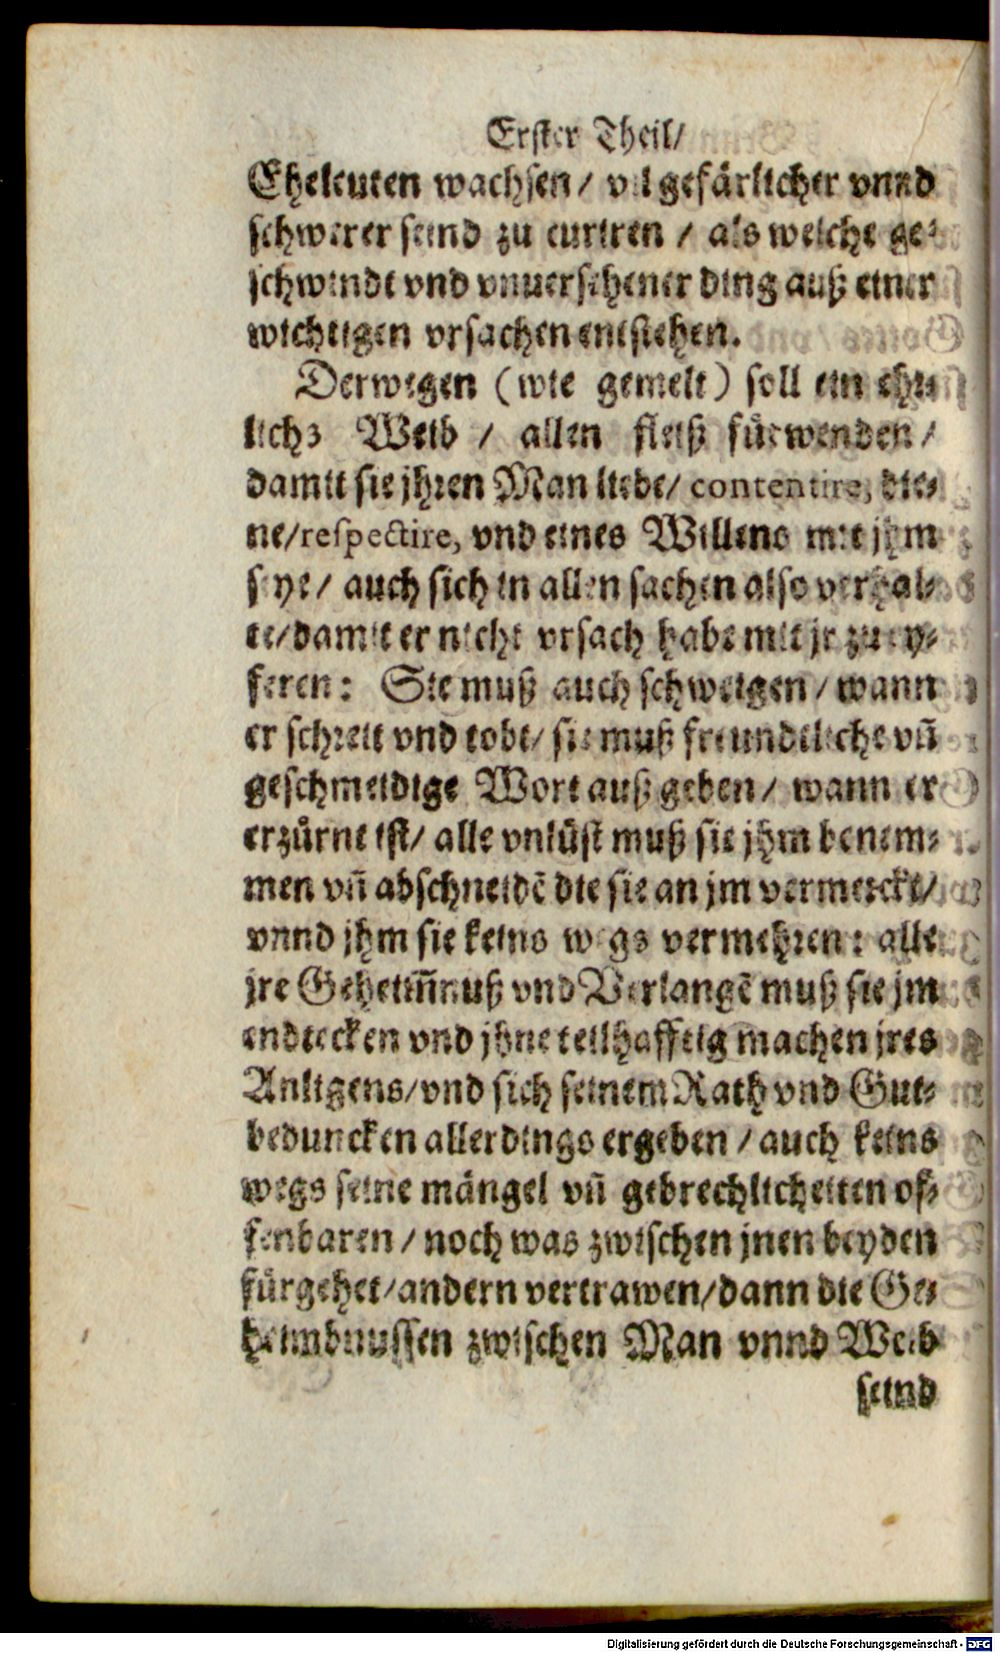 Erster Theil/
Eheleuten wachsen / vil gefärlicher vnnd
schwerer seind zu curiren / als welche ge⸗
schwindt vnd vnuersehener ding auß einer
wichtigen vrsachen entstehen.
Derwegen (wie gemelt) soll ein ehr⸗
lichs Weib / allen fleiß fürwenden /
damit sie jhren Man liebe / contentire, die⸗
ne / respectire, vnd eines Willens mit jhm
seye / auch sich in allen sachen also verhal⸗
te / damit er nicht vrsach habe mit jr zu ey⸗
feren: Sie muß auch schweigen / wann
er schreit vnd tobt / sie muß freundtliche vñ
geschmeidige Wort auß geben / wann er
erzürnt ist / alle vnlüst muß sie jhm benem⸗
men vñ abschneidẽ die sie an jm vermerckt /
vnnd jhm sie keins wegs vermehren: alle
jre Geheim̃nuß vnd Verlangẽ muß sie jm
endtecken vnd jhne teilhafftig machen jres
Anligens / vnd sich seinem Rath vnd Gut⸗
beduncken allerdings ergeben / auch keins
wegs seine mängel vñ gebrechlicheiten of⸗
fenbaren / noch was zwischen jnen beyden
fürgehet / andern vertrawen / dann die Ge⸗
heimbnussen zwischen Man vnnd Weib
seind
Digitalisierung gefördert durch die Deutsche Forschungsgemeinschaft - DFG